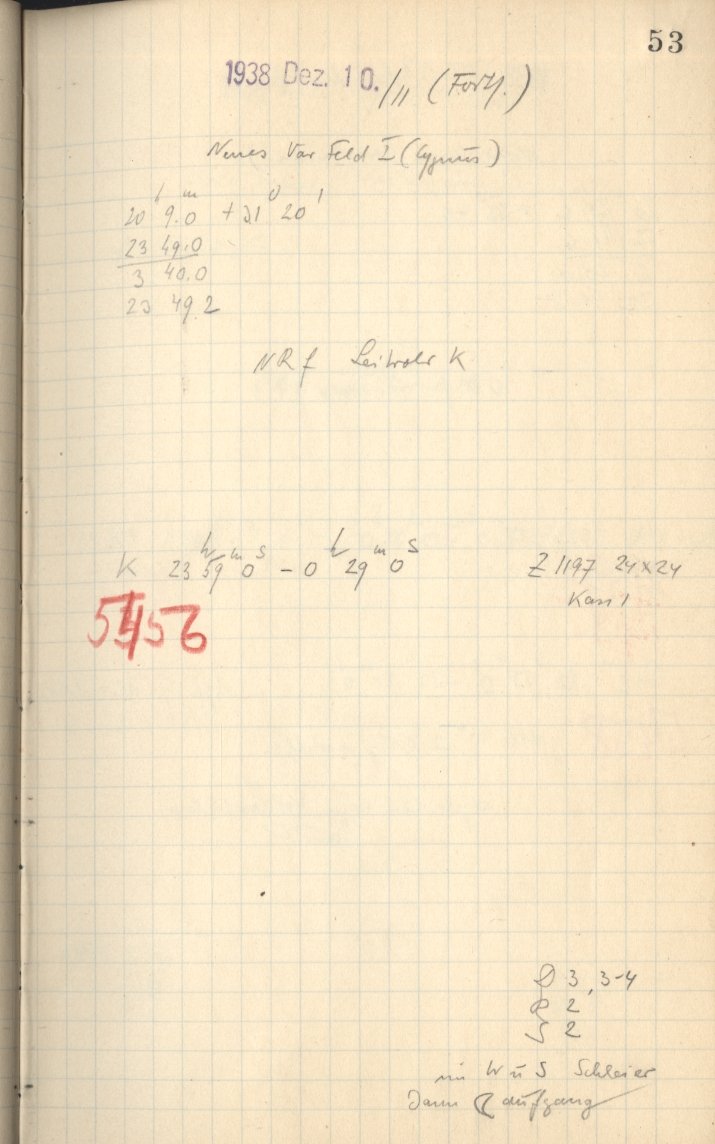 53
1938 Dez. 10./11 (Forts.)
Neues Var Feld I (Cygnus)
20h 9.0m + 31° 20'
23 49.0
3 40.0
23 49.2
NRf Leitrohr K
K 23h 59m 0s - 0h 29m 0s
Z 1197 24x24
Kass 1
5456
D 3, 3-4
R 2
S 2
im W u S Schleier
Dann ☾ aufgang